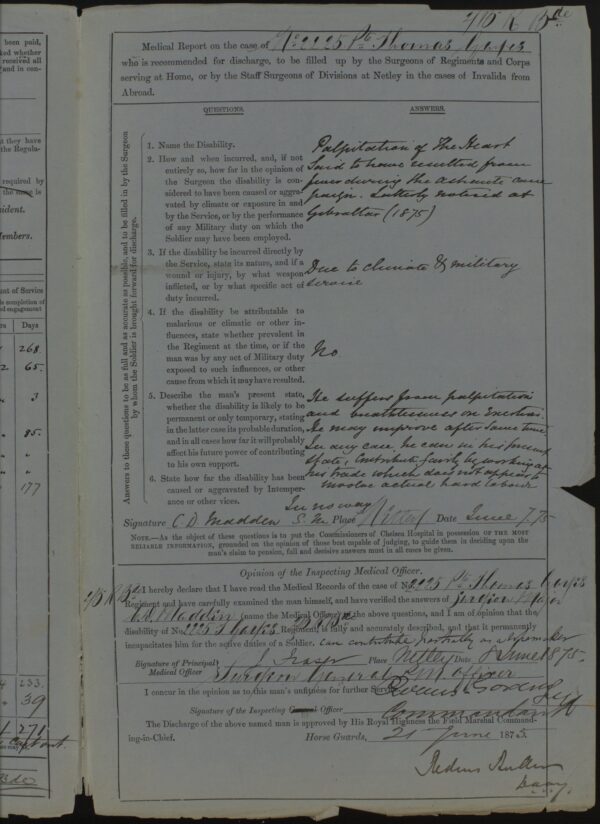 been paid,
ked whether
received all
and in con-
t they have
the Regula-
required by
the same is
ident.
Members.
nt of Service
s completion of
ed engagement
rs Days
268
2 65
3
85
177
233
39
271
2/15 R 15 de
Medical Report on the case of No 2225 Pte Thomas
who is recommended for discharge, to be filled up by the Surgeons of Regiments and Corps
serving at Home, or by the Staff Surgeons of Divisions at Netley in the cases of Invalids from
Abroad.
QUESTIONS. ANSWERS.
Answers to these questions to be as full and as accurate as possible, and to be filled in by the Surgeon
by whom the Soldier is brought forward for discharge.
1. Name the Disability.
Palpitation of The Heart
2. How and when incurred, and, if not
entirely so, how far in the opinion of
the Surgeon the disability is con-
sidered to have been caused or aggra-
vated by climate or exposure in and
by the Service, or by the performance
of any Military duty on which the
Soldier may have been employed.
Said to have resulted from
fever during the Ashanti cam
paign. Latterly noticed at
Gibraltar (1875)
3. If the disability be incurred directly by
the Service, state its nature, and if a
wound or injury, by what weapon
inflicted, or by what specific act of
duty incurred.
Due to climate & military
service
4. If the disability be attributable to
malarious or climatic or other in-
fluences, state whether prevalent in
the Regiment at the time, or if the
man was by any act of Military duty
exposed to such influences, or other
cause from which it may have resulted.
No
5. Describe the man's present state,
whether the disability is likely to be
permanent or only temporary, stating
in the latter case its probable duration,
and in all cases how far it will probably
affect his future power of contributing
to his own support.
He suffers from palpitation
and on Exertion.
He may improve after some time
In any case he can in his present
State, contribute fairly by working at
his trade which does not appear to
involve actual hard labour
6. State how far the disability has been
caused or aggravated by Intemper-
ance or other vices.
In no way
Signature C D Madden S. M Place Netley Date June 7 75
NOTE.—As the object of these questions is to put the Commissioners of Chelsea Hospital in possession OF THE MOST
RELIABLE INFORMATION, grounded on the opinion of those best capable of judging, to guide them in deciding upon the
man's claim to pension, full and decisive answers must in all cases be given.
Opinion of the Inspecting Medical Officer.
I hereby declare that I have read the Medical Records of the case of No 2225 Pte Thomas
Regiment and have carefully examined the man himself, and have verified the answers of Surgeon Major
C. D. Madden (name the Medical Officer) to the above questions, and I am of opinion that the
disability of No. 2225 Regiment, is fully and accurately described, and that it permanently
incapacitates him for the active duties of a Soldier. Can contribute partially as a
Signature of Principal Medical Officer Fraser Place Netley Date 8 June 1875.
Surgeon General P M Officer
I concur in the opinion as to this man's unfitness for further Service.
Signature of the Inspecting General Officer Commandant
The Discharge of the above named man is approved by His Royal Highness the Field Marshal Command-
ing-in-Chief. Horse Guards, 21 June 1875.
Redvers Buller